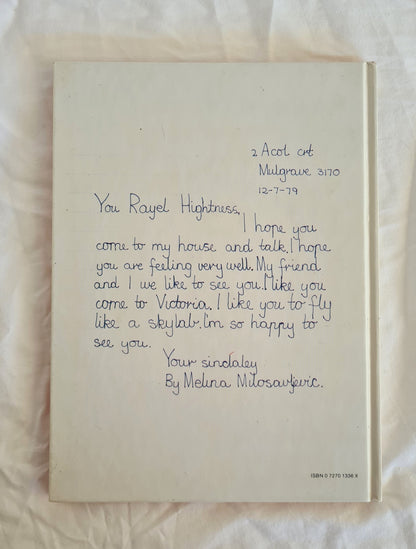 2 Acol crt
Mulgrave 3170
12-7-79
You Rayel Hightness,
I hope you
come to my house and talk. I hope
you are feeling very well. My friend
and I we like to see you. I like you
come to Victoria. I like you to fly
like a skylab. I'm so happy to
see you.
Your sinclaley
By Melina Milosavljevic.
ISBN 0 7270 1336 X